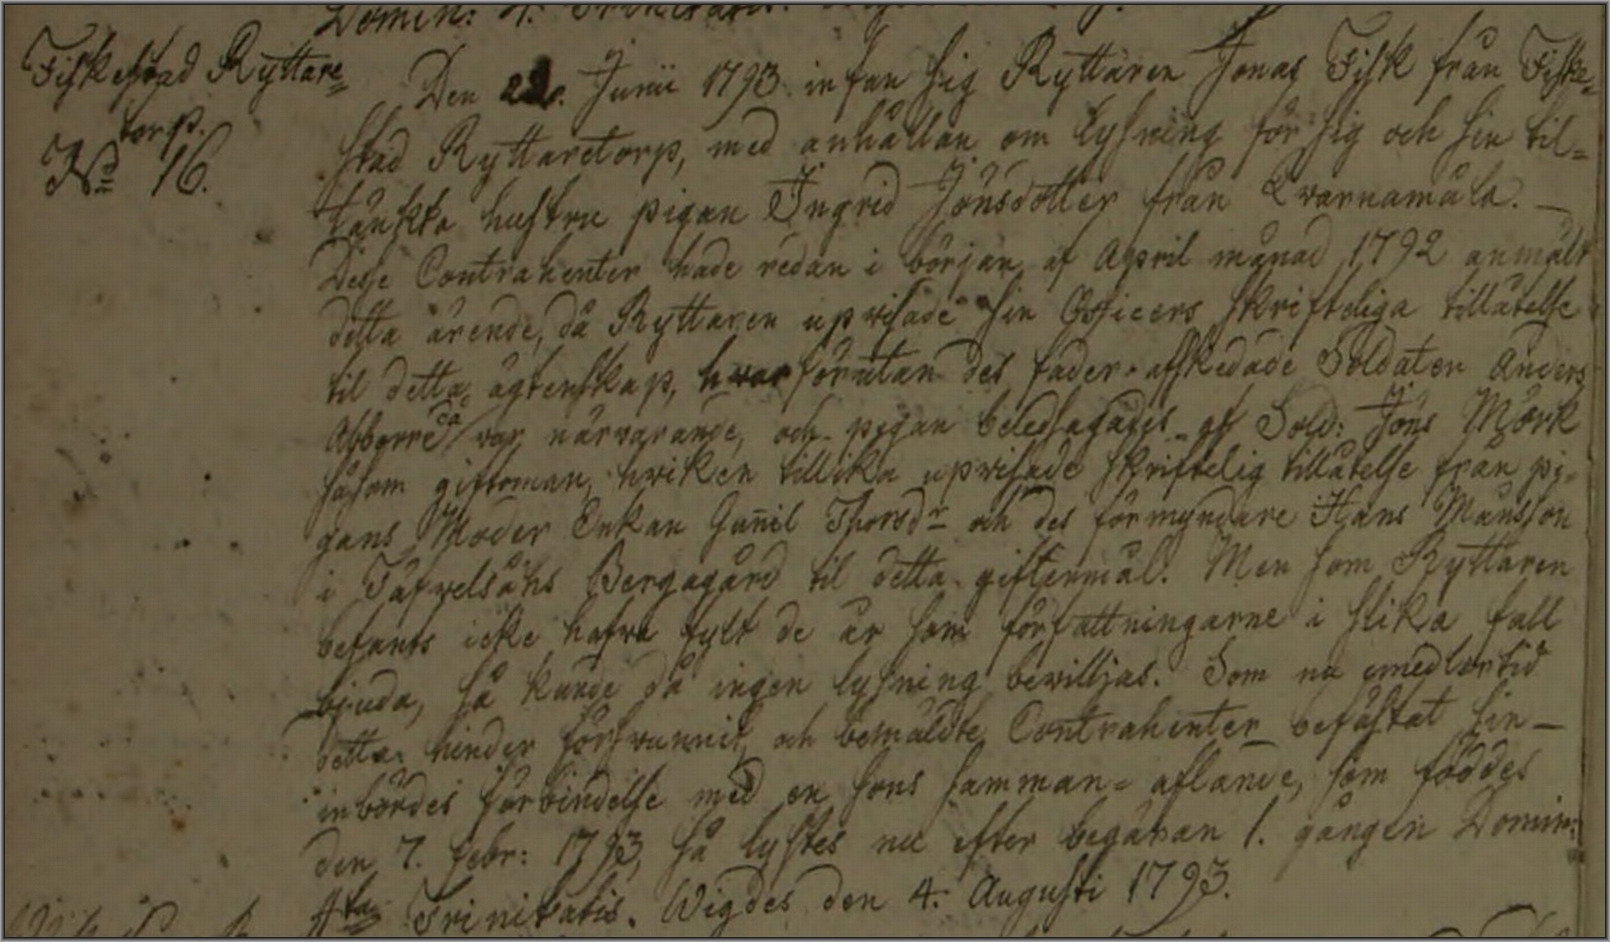 Domin: 4.
Fiskestad Ryttare=
torp.
No 16.
Den 22. Junii 1793 infan sig Ryttaren Jonas Fisk från Fiske=
stad Ryttaretorp, med anhållan om lysning för sig och sin til=
tänkta hustru pigan Ingrid Jönsdotter från Qvarnamåla. —
Desse Contrahenter hade redan i början af April månad 1792 anmält
detta ärende, då Ryttaren upvisade sin Officers skrifteliga tillåtelse
til detta ägtenskap, hvarförutan des fader afskedade Soldaten Anders
Abborre då var närvarande, och pigan beledsagades af Sold: Jöns Mörk
såsom giftoman, hvilken tillika upvisade skriftelig tillåtelse från pi=
gans Moder Enkan Gunil Thorsdr och des förmyndare Hans Månsson
i Täfvelsåhs Bergagård til detta giftermål. Men som Ryttaren
befants icke hafva fylt de år som författningarne i slika fall
bjuda, så kunde då ingen lysning bevilljas. Som nu emedlertid
detta hinder försvunnit, och bemäldte Contrahenter befästat sin —
inbördes förbindelse med en sons samman=aflande, som föddes
den 7. Febr: 1793, så lystes nu efter begäran 1. gången Domin:
4ta Trinitatis. Wigdes den 4. Augusti 1793.